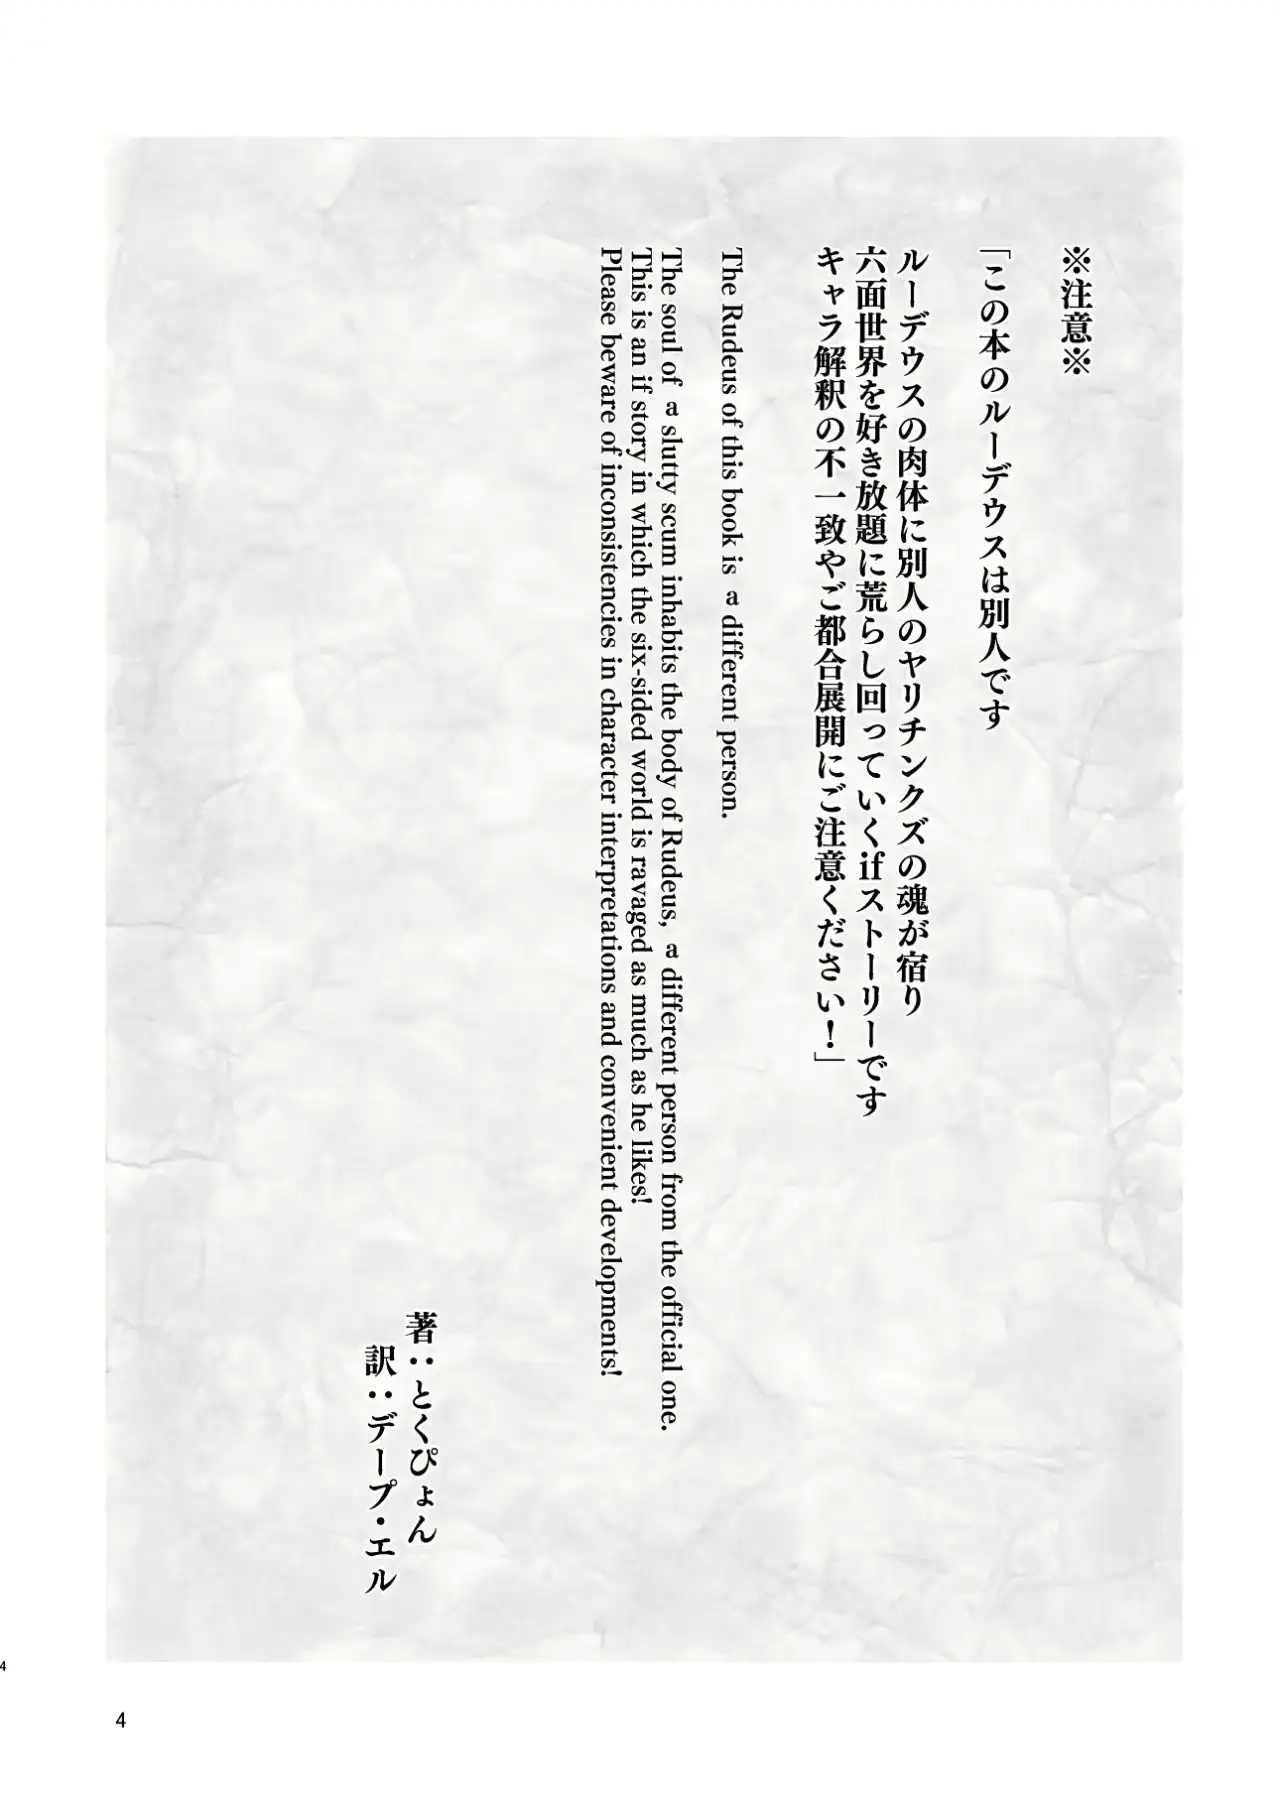 ※注意※
「この本のルーデウスは別人です
ルーデウスの肉体に別人のヤリチンクズの魂が宿り
六面世界を好き放題に荒らし回っていくifストーリーです
キャラ解釈の不一致やご都合展開にご注意ください！」
The Rudeus of this book is a different person.
The soul of a slutty scum inhabits the body of Rudeus, a different person from the official one.
This is an if story in which the six-sided world is ravaged as much as he likes!
Please beware of inconsistencies in character interpretations and convenient developments!
著：とくぴょん
訳：デープ・エル
4
4